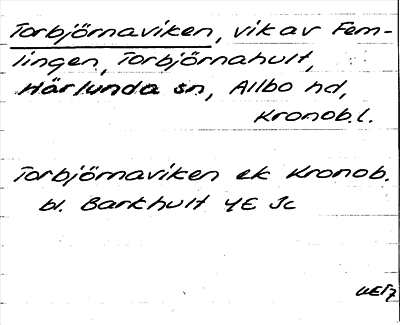 Torbjörnaviken, vik av Fem-
lingen, Torbjörnahult,
Härlunda sn, Allbo hd,
Kronob.l.
Torbjörnaviken ek Kronob.
bl. Barkhult 4E Jc